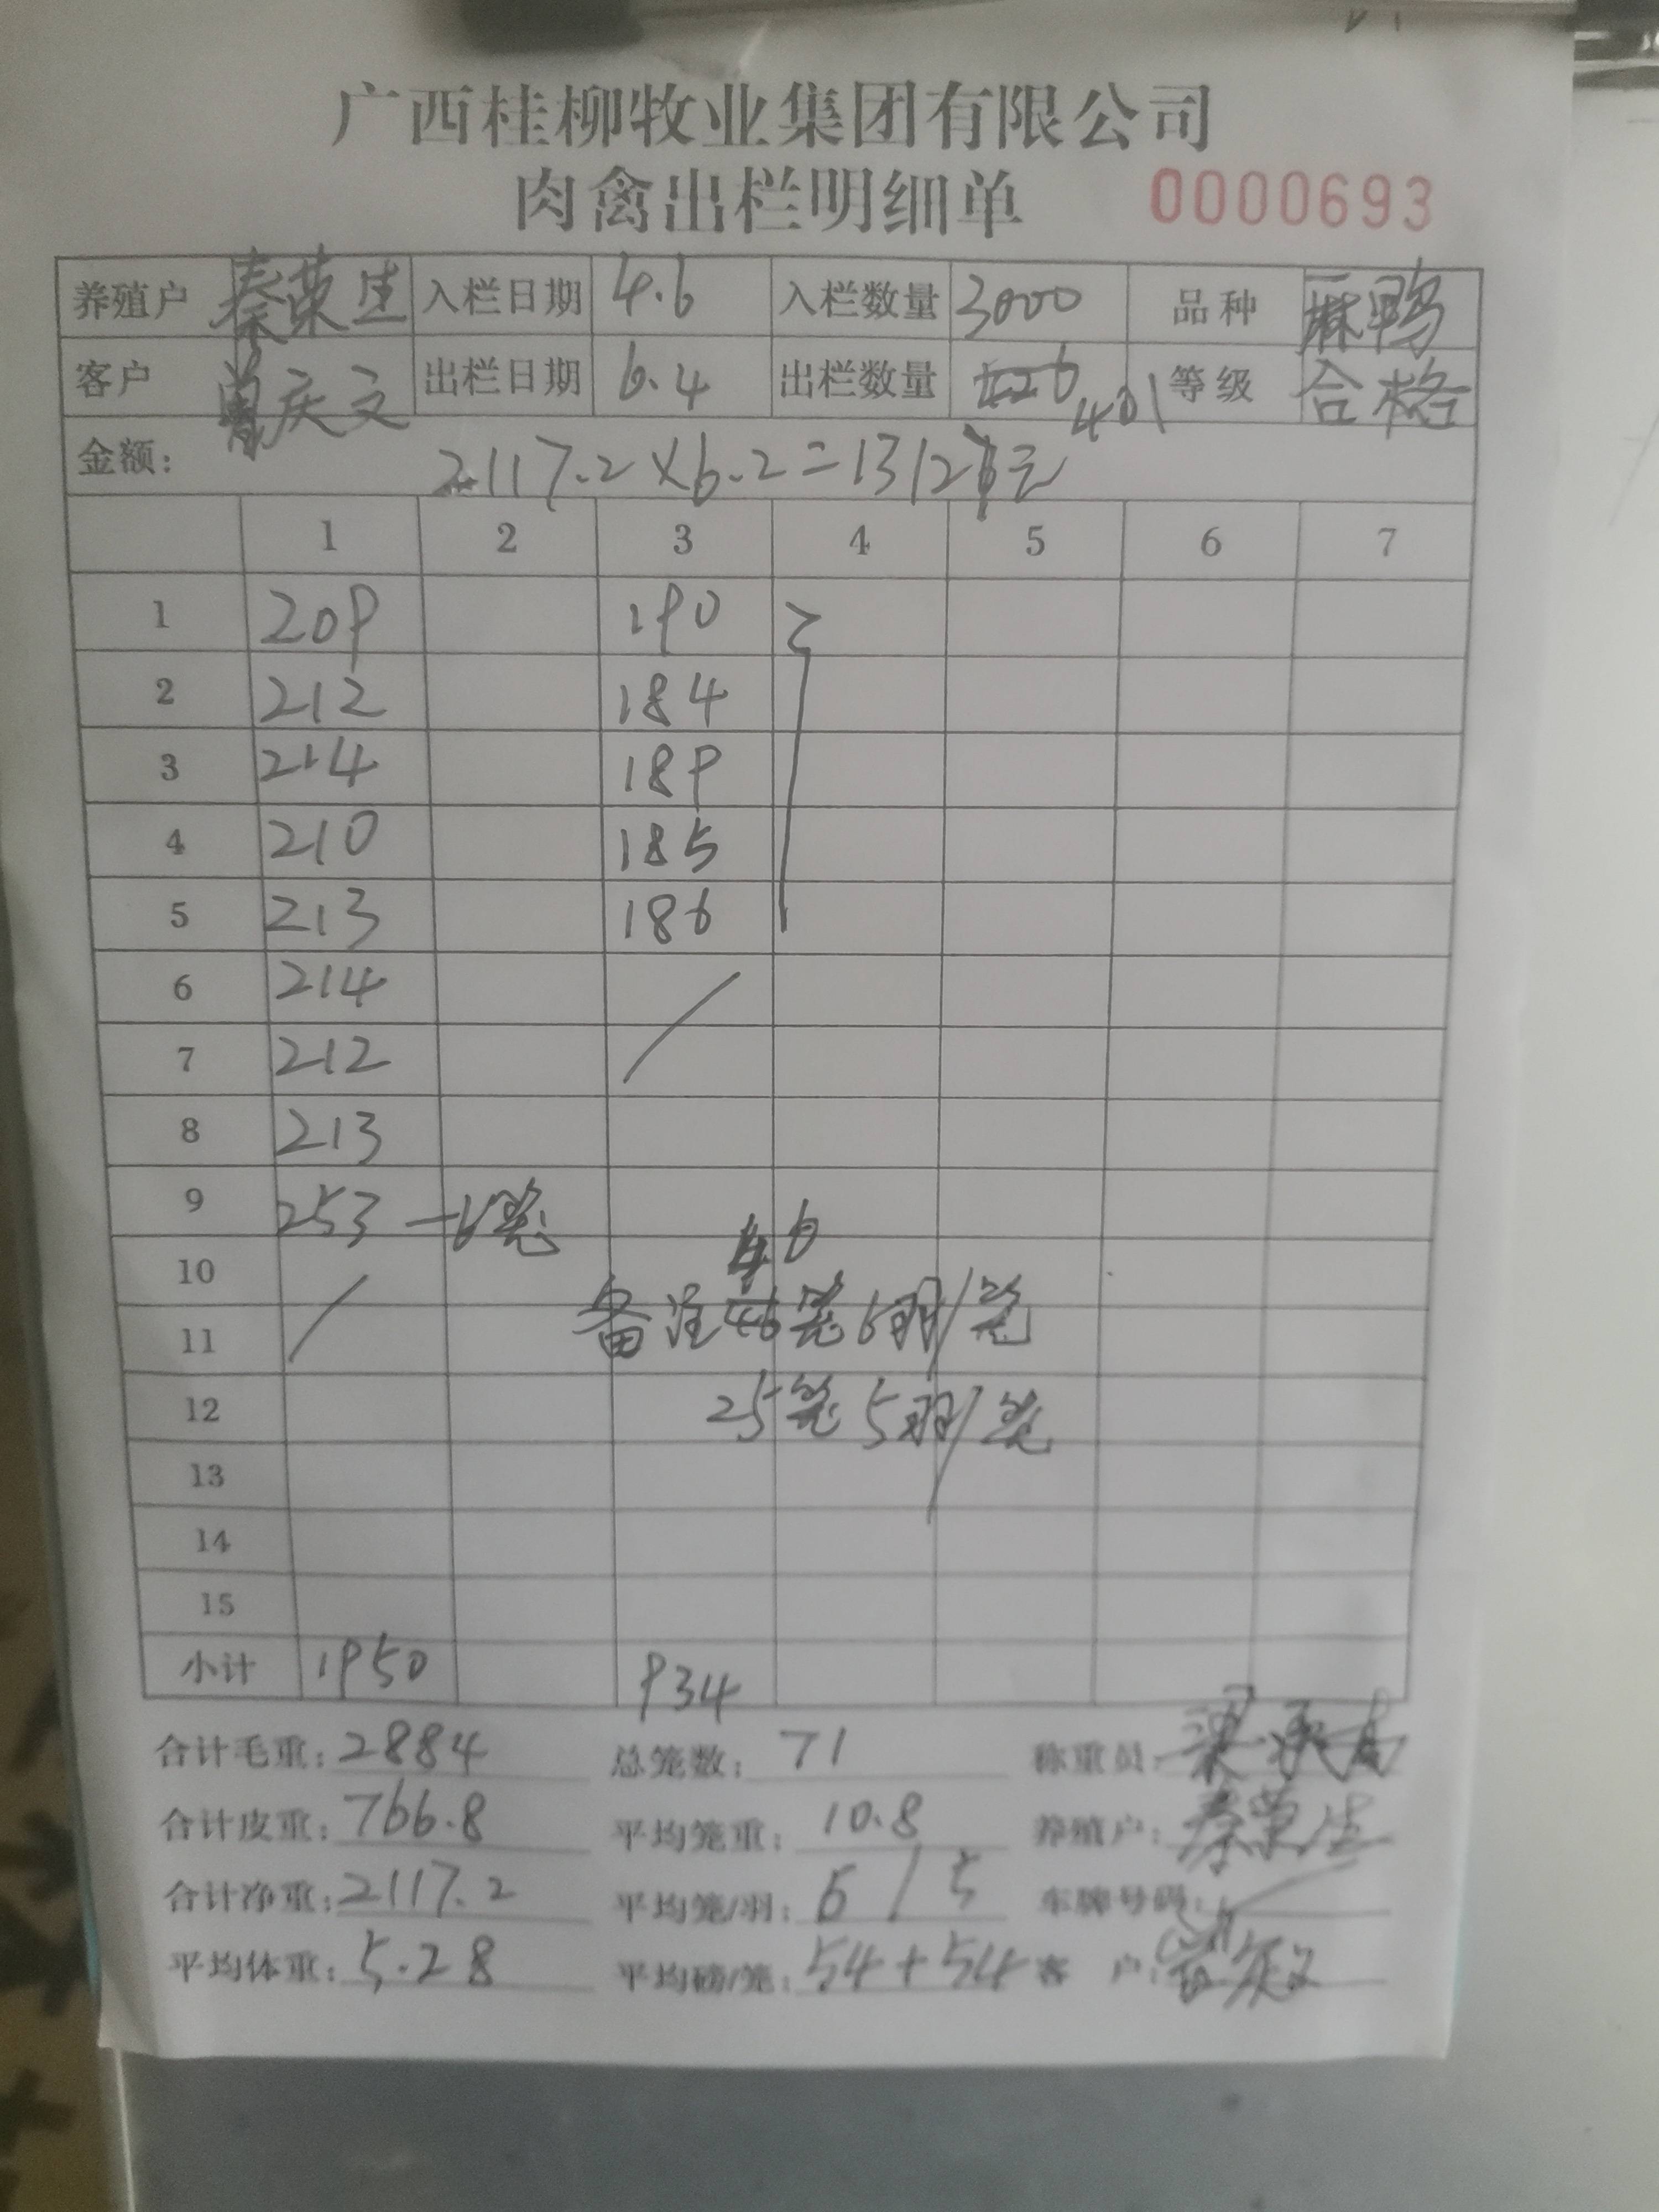 广西桂柳牧业集团有限公司
肉禽出栏明细单 0000693
养殖户 秦荣生 入栏日期 4.6 入栏数量 3000 品种 麻鸭
客户 曾庆文 出栏日期 6.4 出栏数量 401 等级 合格
金额: 2117.2×6.2=13127元
1 2 3 4 5 6 7
1 209 190
2 212 184
3 214 189
4 210 185
5 213 186
6 214
7 212
8 213
9 253 —6笼
10 46
11 备注 46笼 6羽/笼
12 25笼 5羽/笼
13
14
15
小计 1950 934
合计毛重: 2884 总笼数: 71 称重员:
合计皮重: 766.8 平均笼重: 10.8 养殖户: 秦荣生
合计净重: 2117.2 平均笼/羽: 6/5 车牌号码:
平均体重: 5.28 平均磅/笼: 54+54 客户: 曾庆文